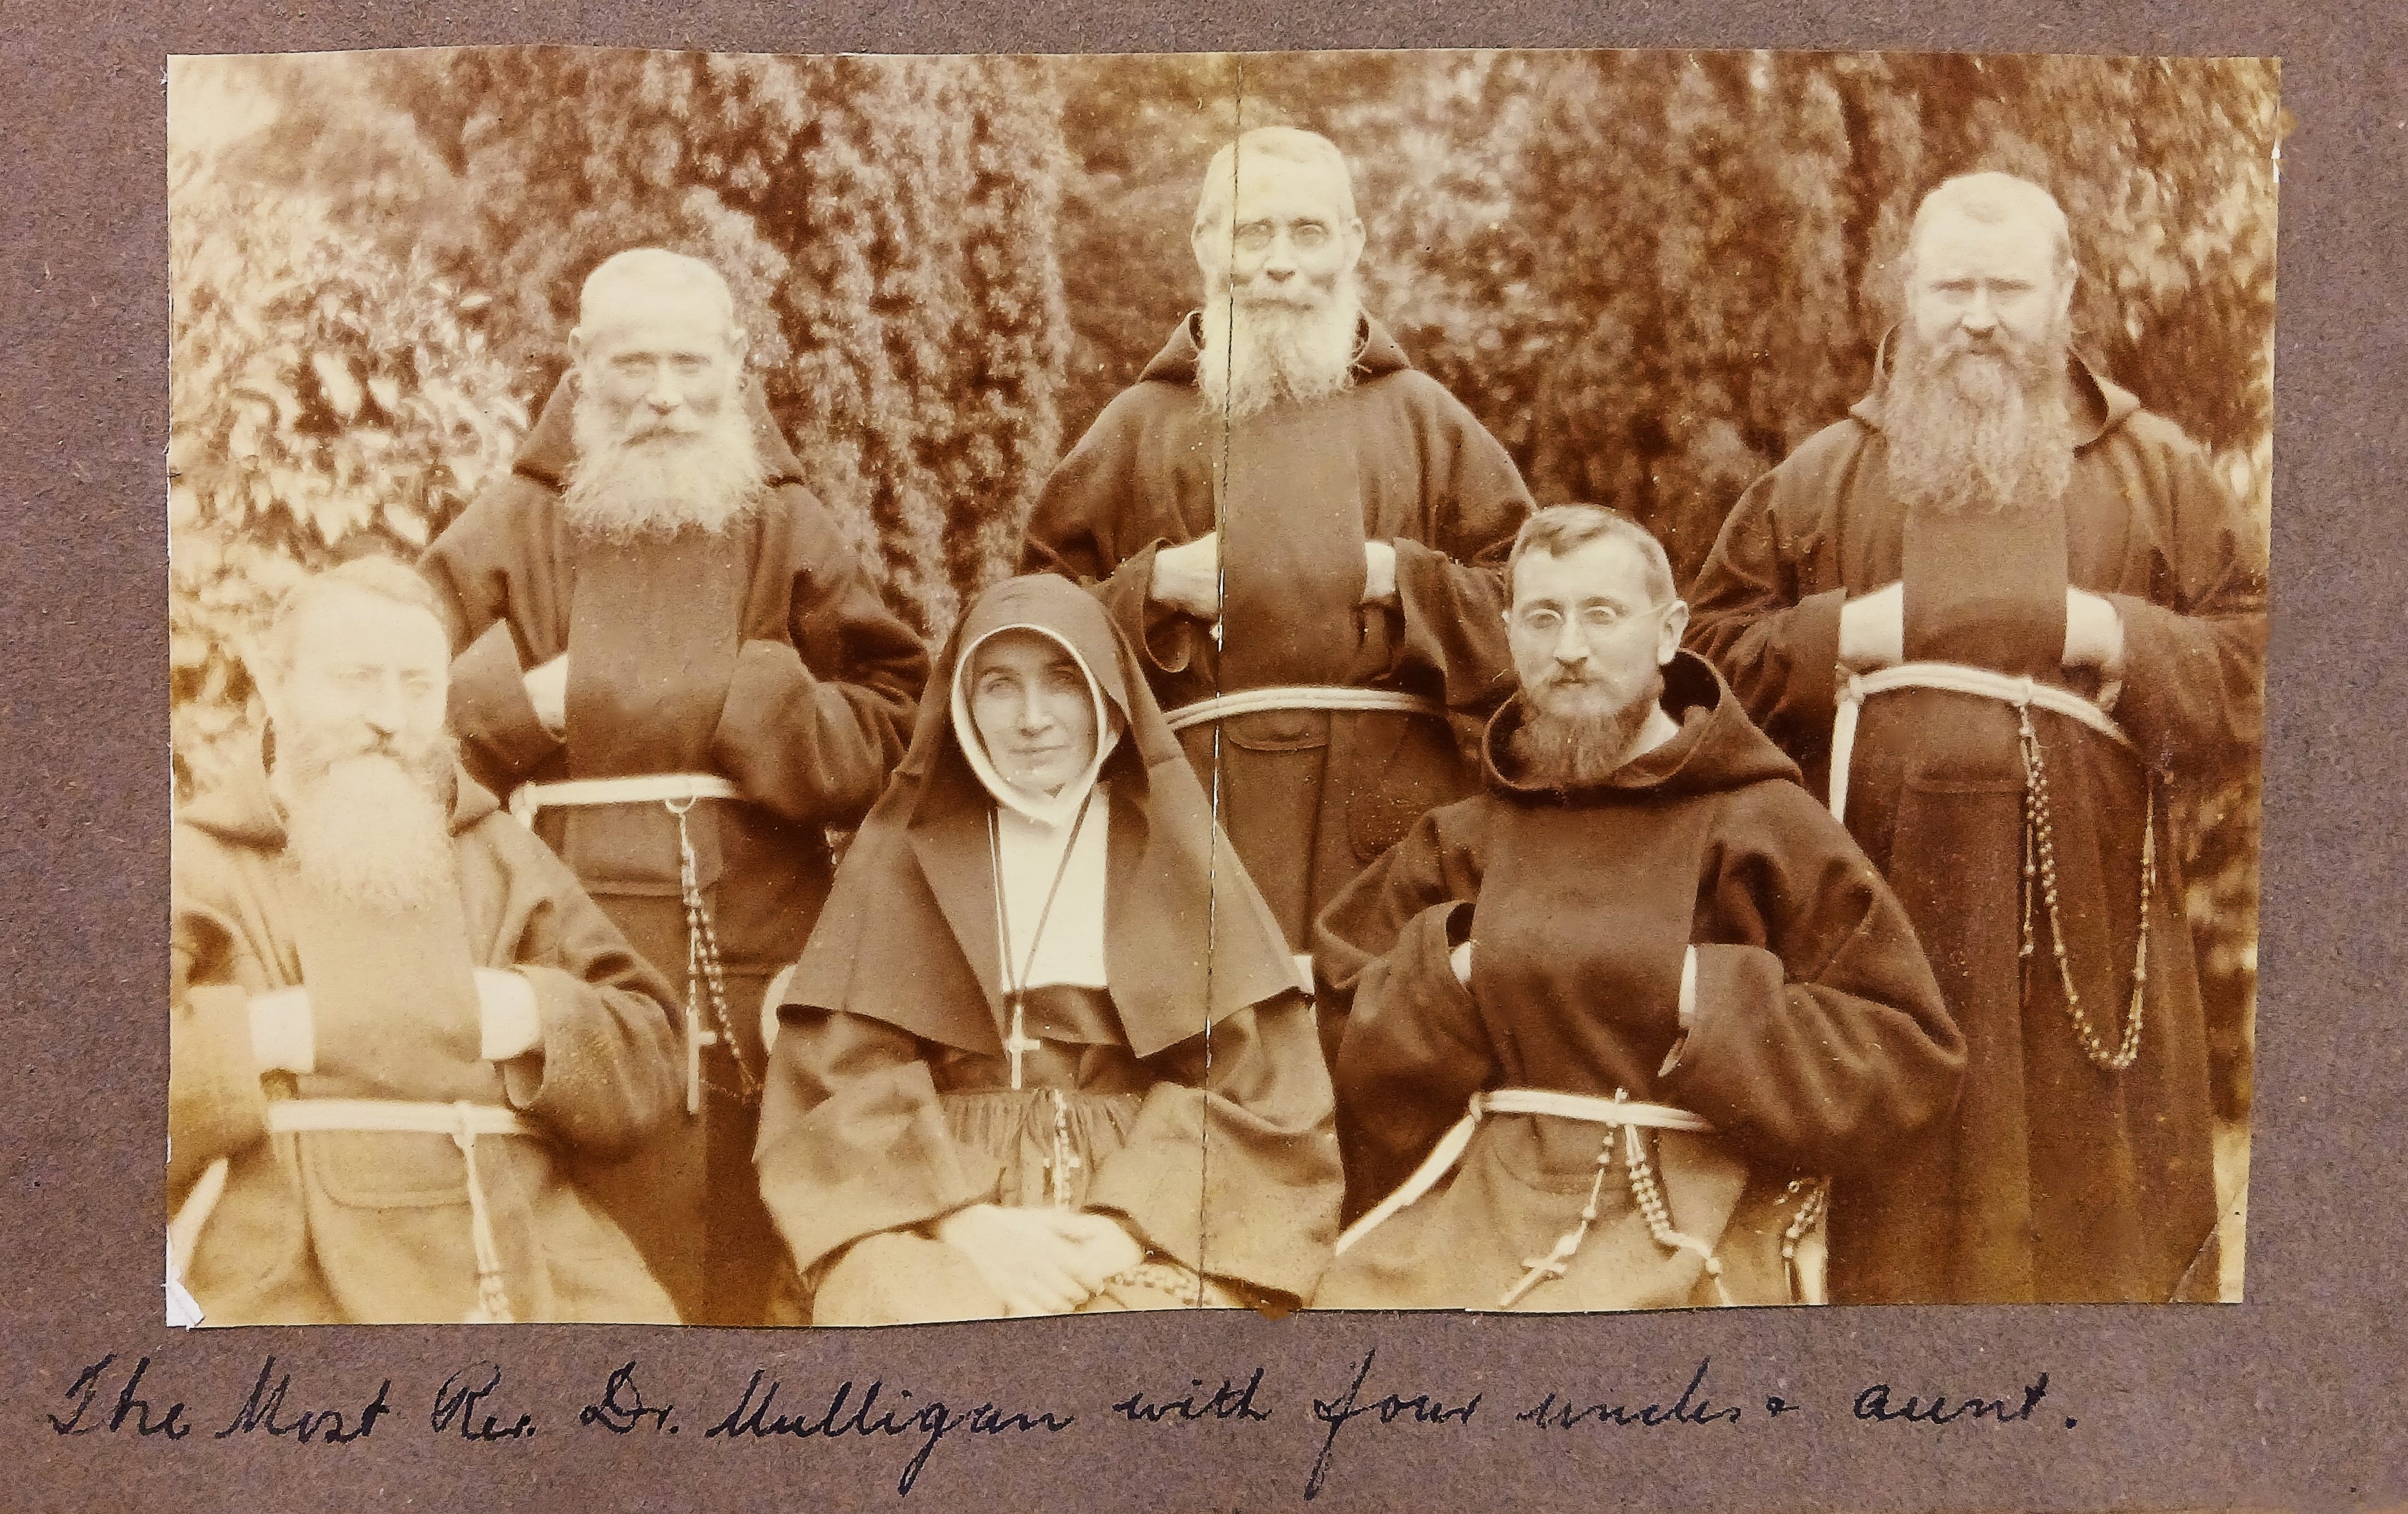 The Most Rev. Dr. Mulligan with four uncles & aunt.